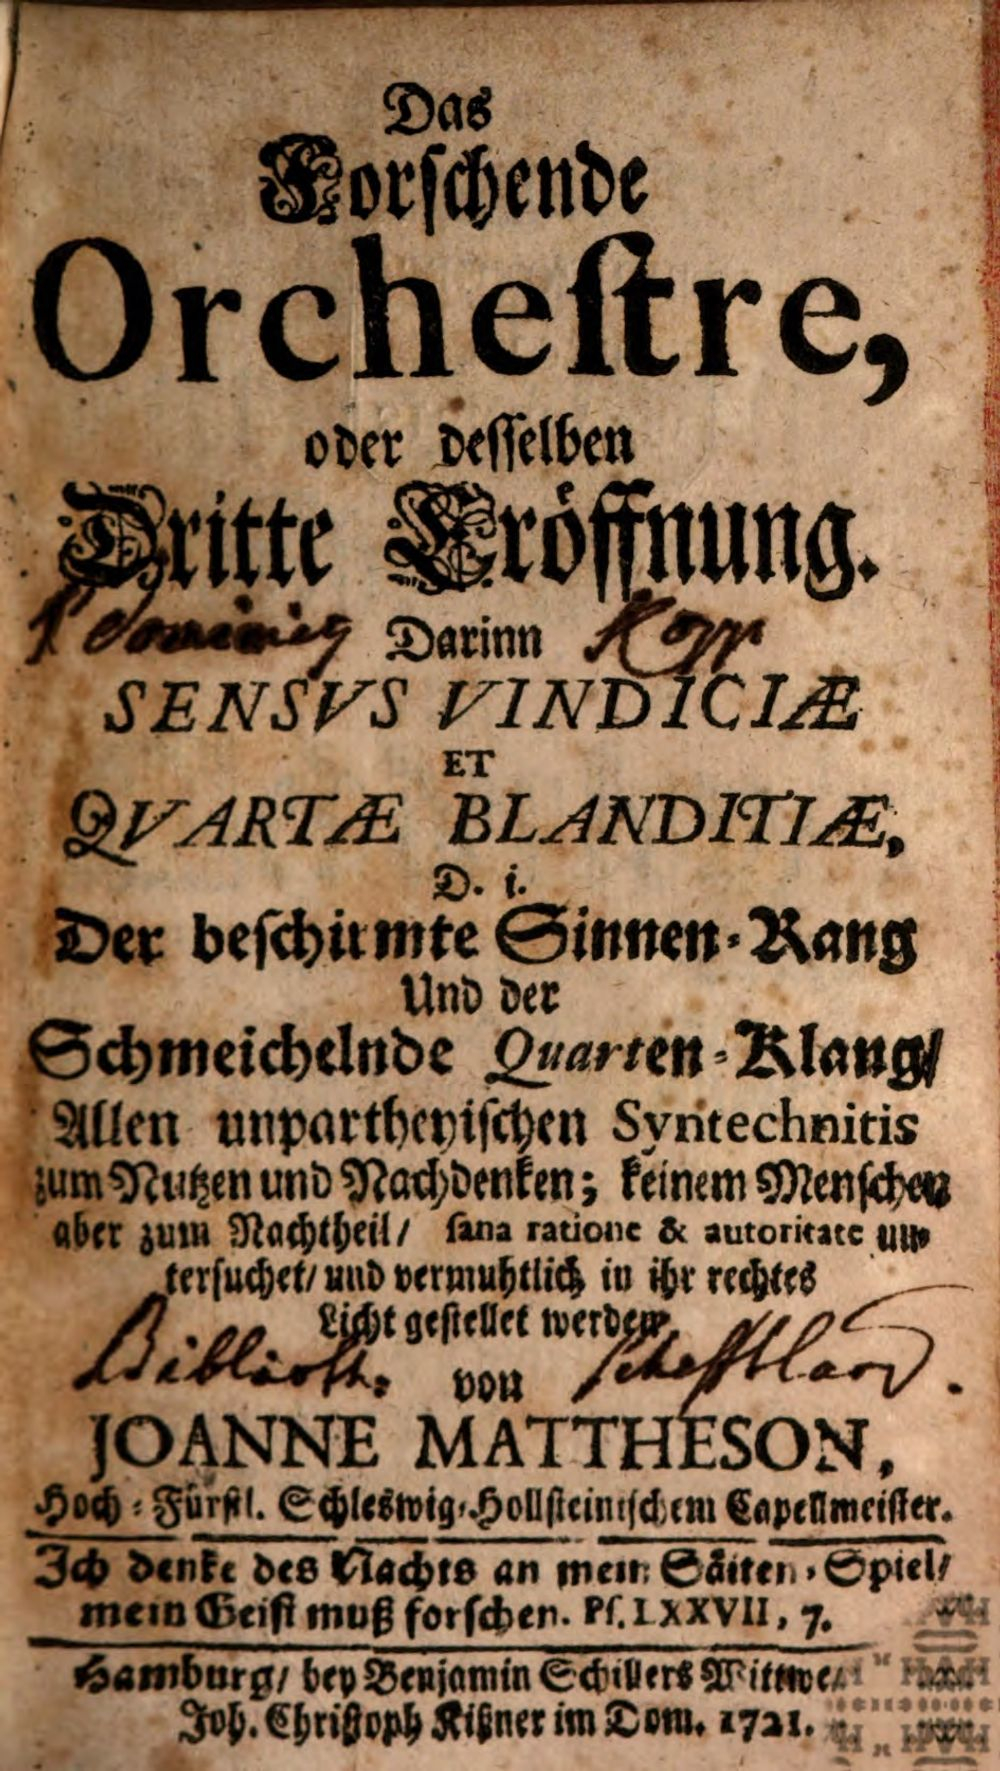 Das
Forſchende
Orcheſtre,
oder deſſelben
Dritte Eröffnung.
Darinn
SENSVS VINDICIÆ
ET
QVARTÆ BLANDITIÆ,
D. i.
Der beſchirmte Sinnen-Rang
Und der
Schmeichelnde Quarten-Klang/
Allen unpartheyiſchen Syntechnitis
zum Nutzen und Nachdenken; keinem Menſchen
aber zum Nachtheil/ ſana ratione & autoritate un-
terſuchet/ und vermuhtlich in ihr rechtes
Licht geſtellet werden,
Biblioth. von Scheftlard.
JOANNE MATTHESON,
Hoch-Fürſtl. Schleswig-Hollſteiniſchem Capellmeiſter.
Ich denke des Nachts an mein Säiten-Spiel/
mein Geiſt muß forſchen. Pſ. LXXVII, 7.
Hamburg/ bey Benjamin Schillers Wittwe/
Joh. Chriſtoph Kißner im Dom. 1721.